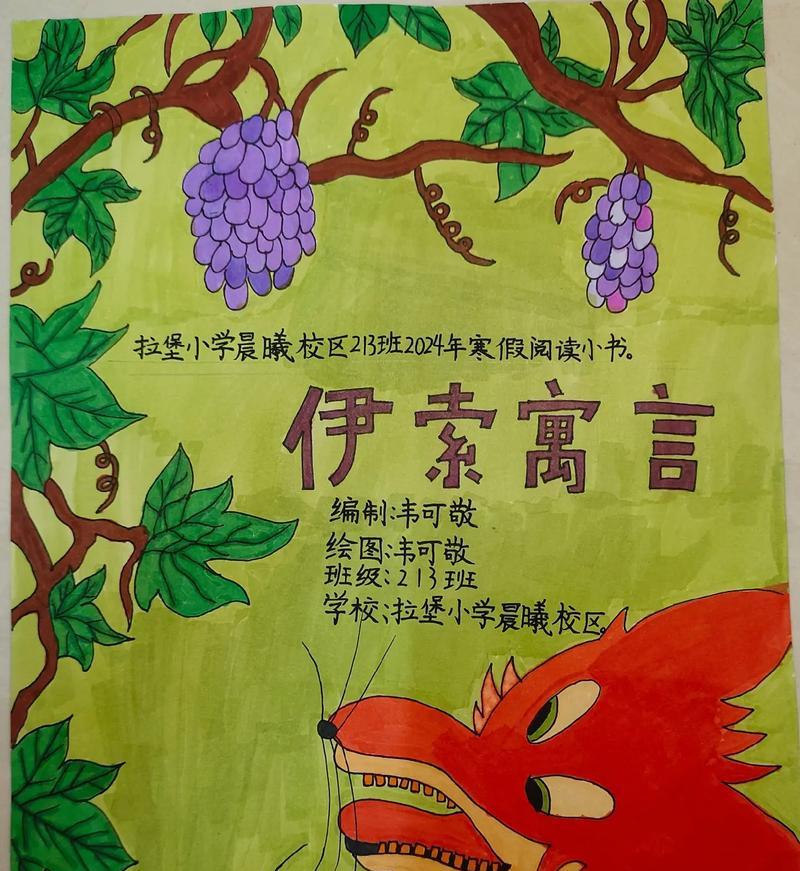 拉堡小学晨曦校区213班2024年寒假阅读小书。
伊索寓言
编制:韦可敬
绘图:韦可敬
班级:213班
学校:拉堡小学晨曦校区。